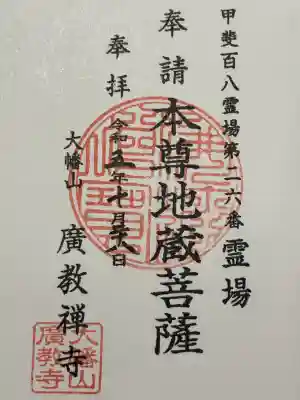 甲斐百八霊場第二六番 霊場
奉請 本尊地蔵菩薩
奉拝 令和五年十月廿八日
大幡山 廣教禅寺
佛法僧寶
大幡山
廣教寺